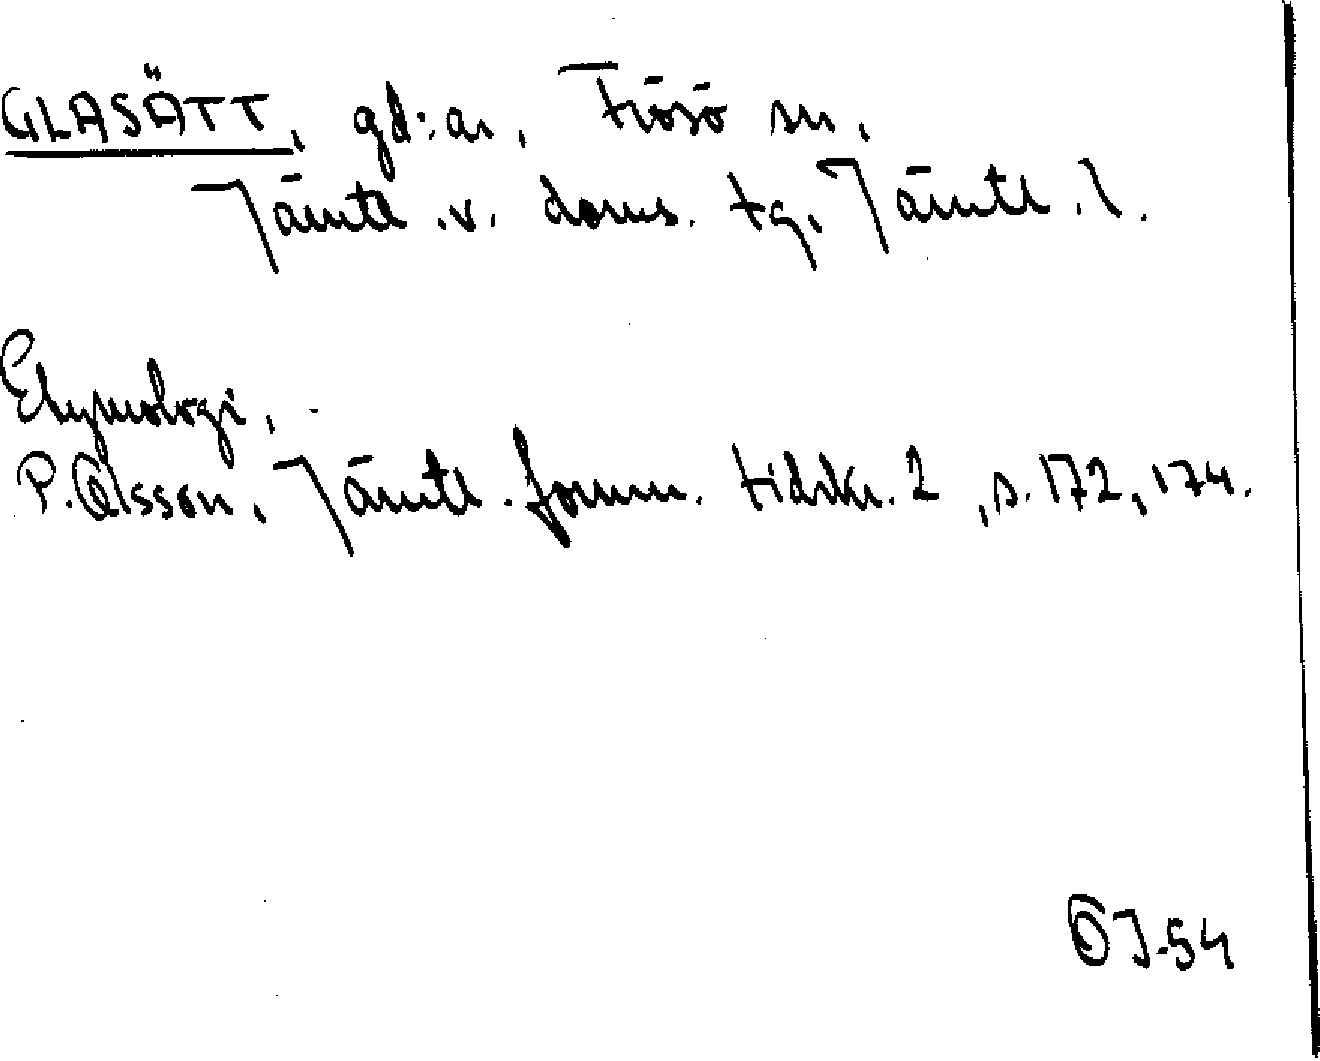 GLASÄTT, gd:ar, Frösö sn,
Jämtl.v. doms. tg, Jämtl.l.
Etymologi,
P. Olsson, Jämtl. fornm. tidskr. 2, s. 172, 174.
ÖJ-54